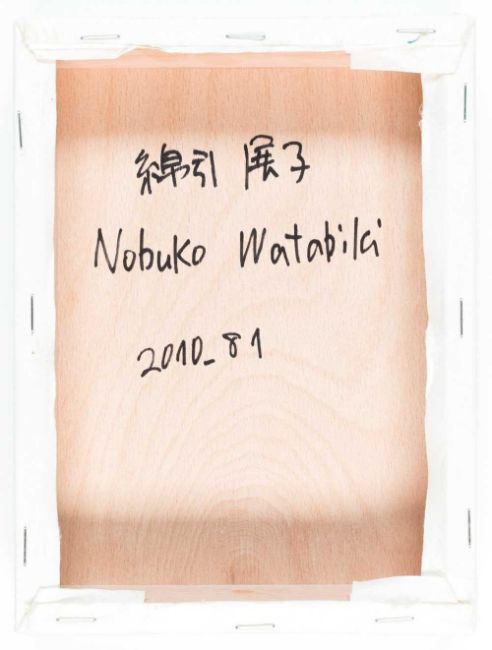 綿引 展子
Nobuko Watabiki
2010_81